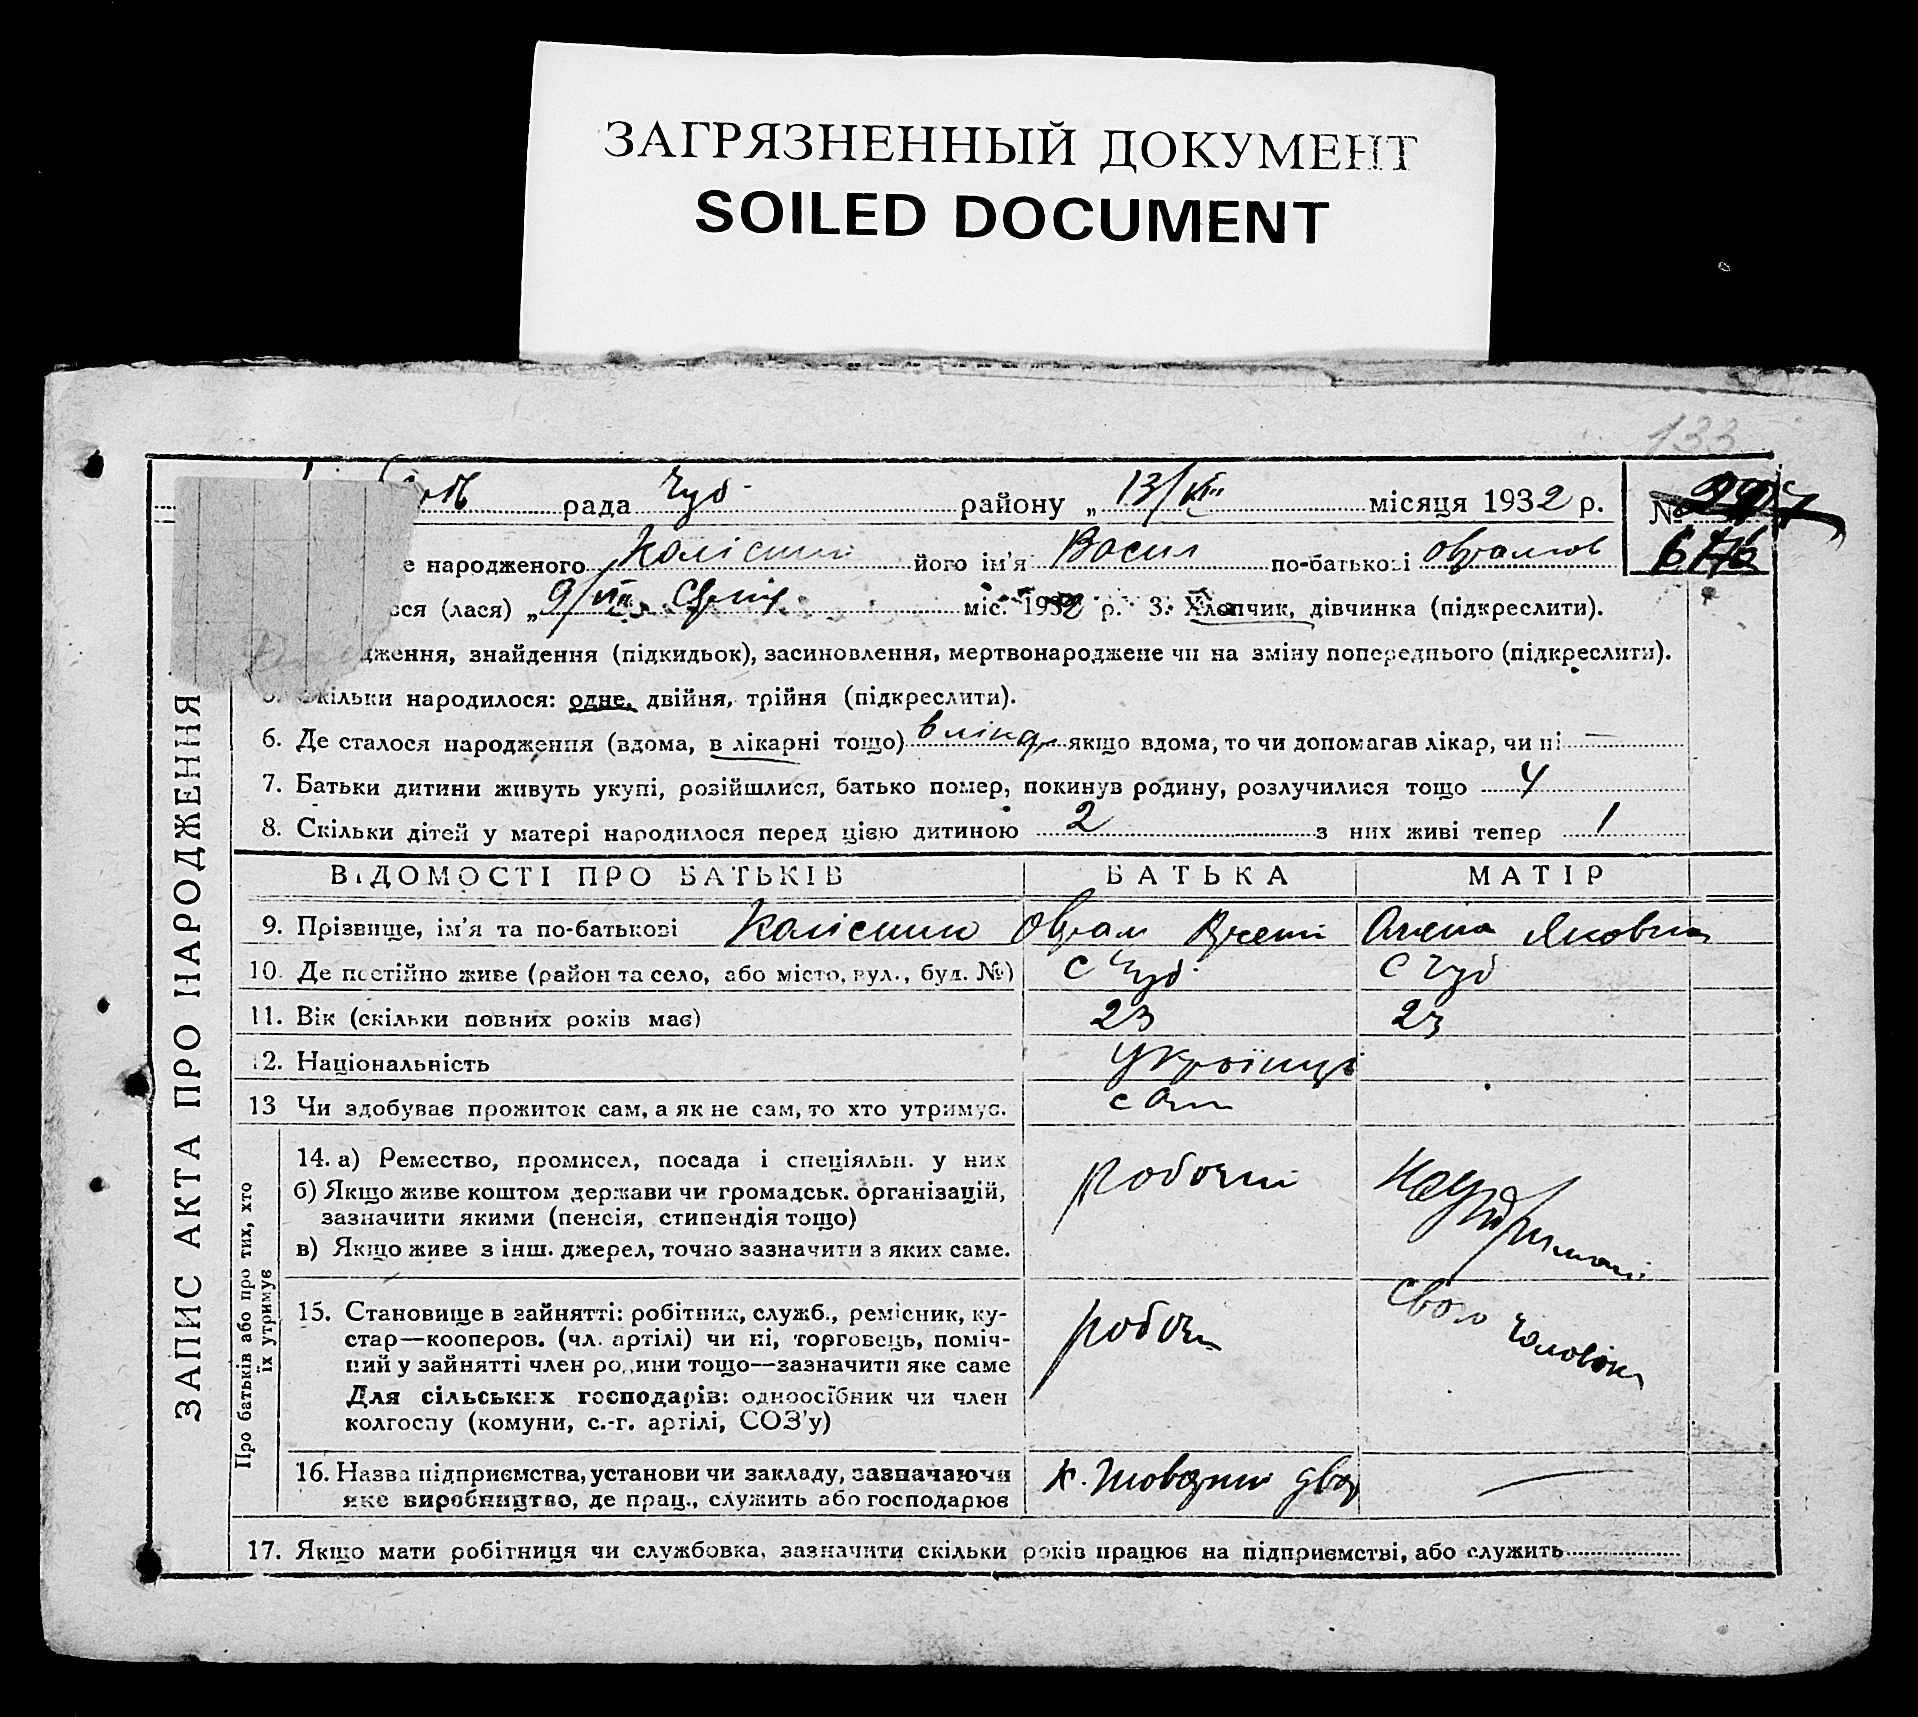 ЗАГРЯЗНЕННЫЙ ДОКУМЕНТ
SOILED DOCUMENT
133
рада Чуб району „ 13/VIII місяця 1932 р. №
е народженого його ім'я Васил по-батькові
ся (лася) „ 9/VIII міс. 1932 р. 3. Хлопчик, дівчинка (підкреслити).
дження, знайдення (підкидьок), засиновлення, мертвонароджене чи на зміну попереднього (підкреслити).
5. Скільки народилося: одне, двійня, трійня (підкреслити).
6. Де сталося народження (вдома, в лікарні тощо) якщо вдома, то чи допомагав лікар, чи ні —
7. Батьки дитини живуть укупі, розійшлися, батько помер, покинув родину, розлучилися тощо
8. Скільки дітей у матері народилося перед цією дитиною 2 з них живі тепер 1
ЗАПИС АКТА ПРО НАРОДЖЕННЯ
ВІДОМОСТІ ПРО БАТЬКІВ БАТЬКА МАТІР
9. Прізвище, ім'я та по-батькові Яковна
10. Де постійно живе (район та село, або місто, вул., буд. №) с Чуб с Чуб
11. Вік (скільки повних років має) 23 23
12. Національність Українці
13 Чи здобуває прожиток сам, а як не сам, то хто утримує. сам
Про батьків або про тих, хто
їх утримує
14. а) Ремество, промисел, посада і спеціяльн. у них робочий
б) Якщо живе коштом держави чи громадськ. організацій,
зазначити якими (пенсія, стипендія тощо)
в) Якщо живе з інш. джерел, точно зазначити з яких саме.
свого чоловіка
15. Становище в зайнятті: робітник, служб., ремісник, ку-
стар—кооперов. (чл. артілі) чи ні, торговець, поміч-
ний у зайнятті член родини тощо—зазначити яке саме
Для сільських господарів: одноосібник чи член
колгоспу (комуни, с.-г. артілі, СОЗ'у)
16. Назва підприємства, установи чи закладу, зазначаючи
яке виробництво, де прац., служить або господарює —
17. Якщо мати робітниця чи службовка, зазначити скільки років працює на підприємстві, або служить